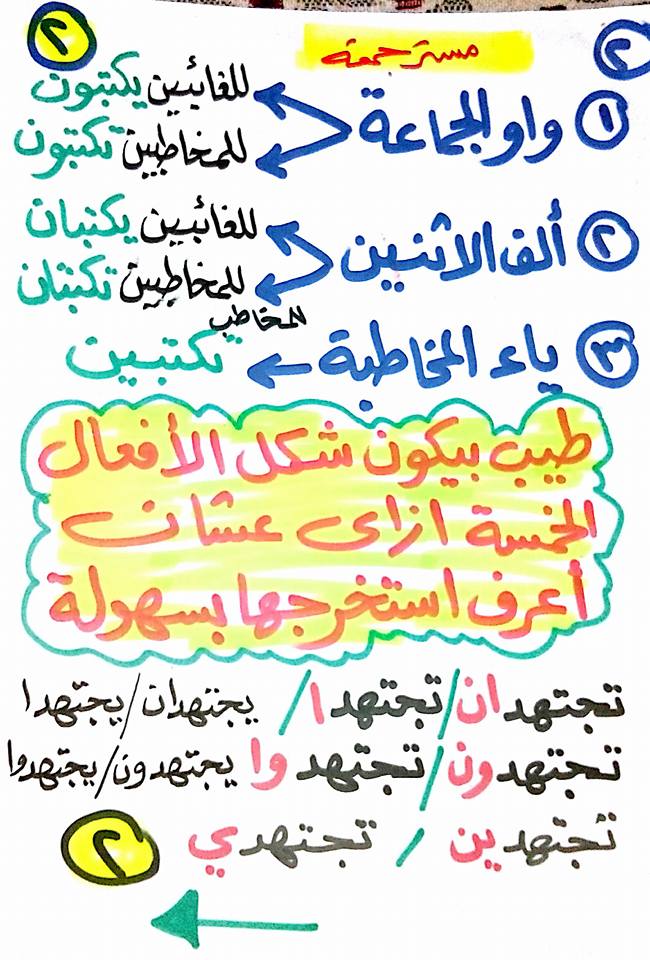 ٢ مستر جمعة ٢
١ واو الجماعة
للغائبين يكتبون
للمخاطبين تكتبون
٢ ألف الاثنين
للغائبين يكتبان
للمخاطبين تكتبان
٣ ياء المخاطبة
للمخاطب
تكتبين
طيب بيكون شكل الأفعال
الخمسة ازاى عشان
أعرف استخرجها بسهولة
تجتهدان / تجتهدا / يجتهدان / يجتهدا
تجتهدون / تجتهدوا يجتهدون / يجتهدوا
تجتهدين / تجتهدي
٢